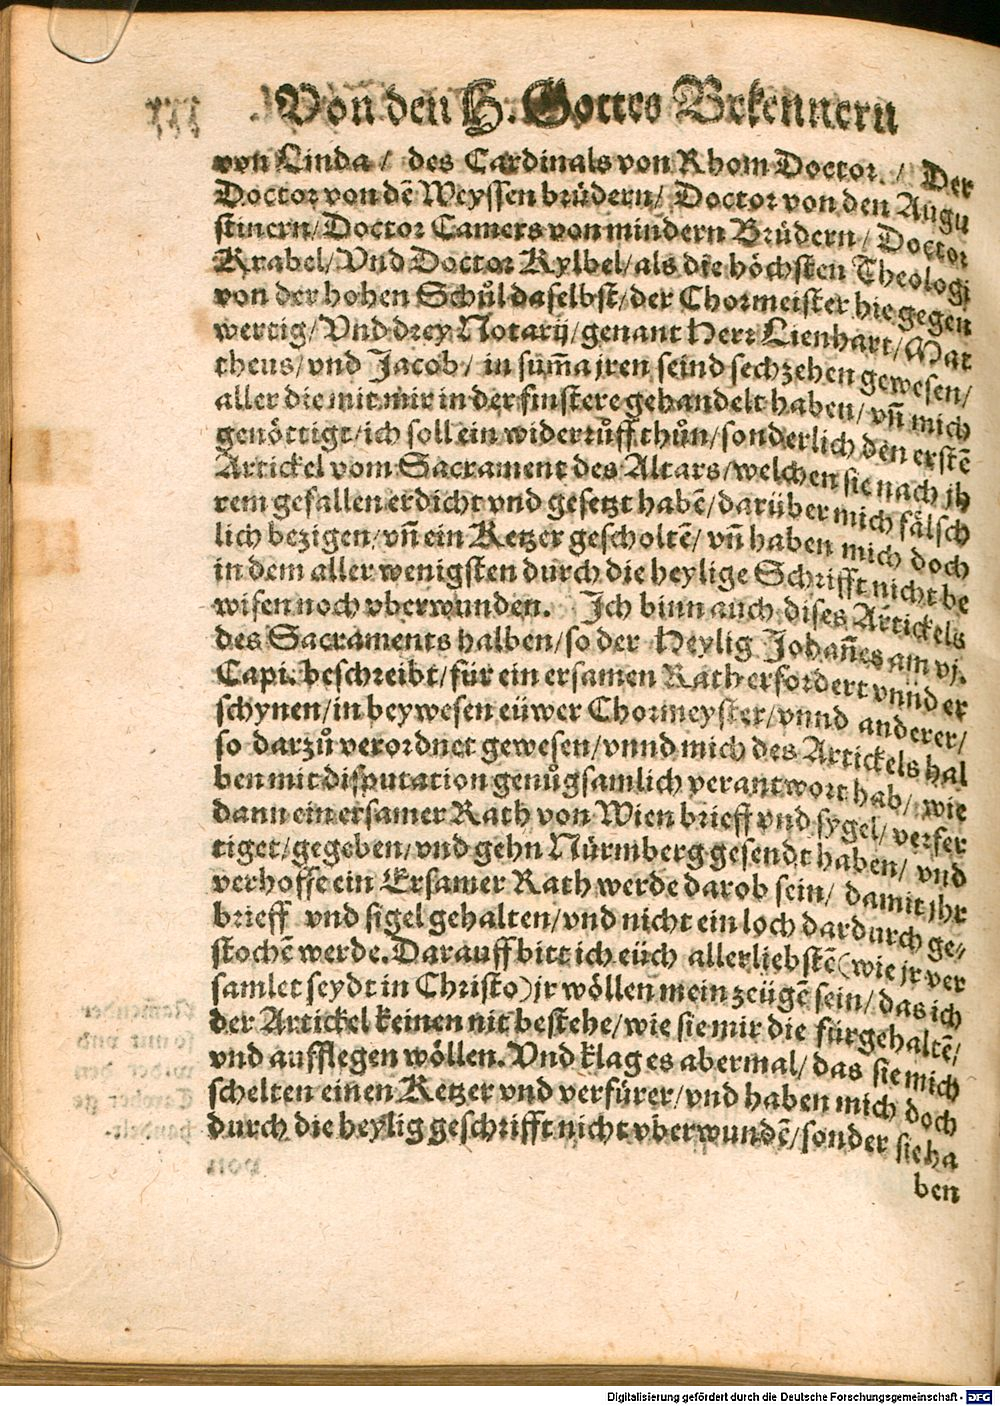 Von den H. Gottes Bekennern
von Linda / des Cardinals von Rhom Doctor / Der
Doctor von dē Weyssen brüdern / Doctor von den Augu
stinern / Doctor Camers von mindern Brüdern / Doctor
Krabel / Vnd Doctor Kylbel / als die höchsten Theologi
von der hohen Schůl daselbst / der Chormeister hie gegen
wertig / Vnd drey Notarij / genant Herr Lienhart / Mat
theus / vnd Jacob / in sum̄a jren seind sechzehen gewesen /
aller die mit mir in der finstere gehandelt haben / vn̄ mich
genöttigt / ich soll ein widerrůff thůn / sonderlich den erstē
Artickel vom Sacrament des Altars / welchen sie nach jh
rem gefallen erdicht vnd gesetzt habē / darüber mich fälsch
lich bezigen / vn̄ ein Ketzer gescholtē / vn̄ haben mich doch
in dem aller wenigsten durch die heylige Schrifft nicht be
wisen noch vberwunden. Ich binn auch dises Artickels
des Sacraments halben / so der Heylig Johan̄es am vj.
Capi. beschreibt / für ein ersamen Rath erfordert vnnd er
schynen / in beywesen eüwer Chormeyster / vnnd anderer /
so darzů verordnet gewesen / vnnd mich des Artickels hal
ben mit disputation genůgsamlich verantwort hab / wie
dann ein ersamer Rath von Wien brieff vnd sygel / verfer
tiget / gegeben / vnd gehn Nürmberg gesendt haben / vnd
verhoffe ein Ersamer Rath werde darob sein / damit jhr
brieff vnd sigel gehalten / vnd nicht ein loch dardurch ge⸗
stochē werde. Darauff bitt ich eüch allerliebstē (wie jr ver
samlet seydt in Christo) jr wöllen mein zeügē sein / das ich
der Artickel keinen nit bestehe / wie sie mir die fürgehaltē /
vnd aufflegen wöllen. Vnd klag es abermal / das sie mich
schelten einen Ketzer vnd verfürer / vnd haben mich doch
durch die heylig geschrifft nicht vberwundē / sonder sie ha
ben
Digitalisierung gefördert durch die Deutsche Forschungsgemeinschaft - DFG